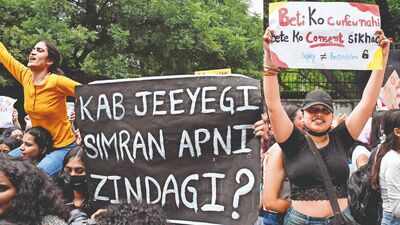 KAB JEEYEGI
SIMRAN APNI
ZINDAGI?
Beti Ko Curfew nahi
Bete Ko Consent sikhao
Safety ≠ Restriction